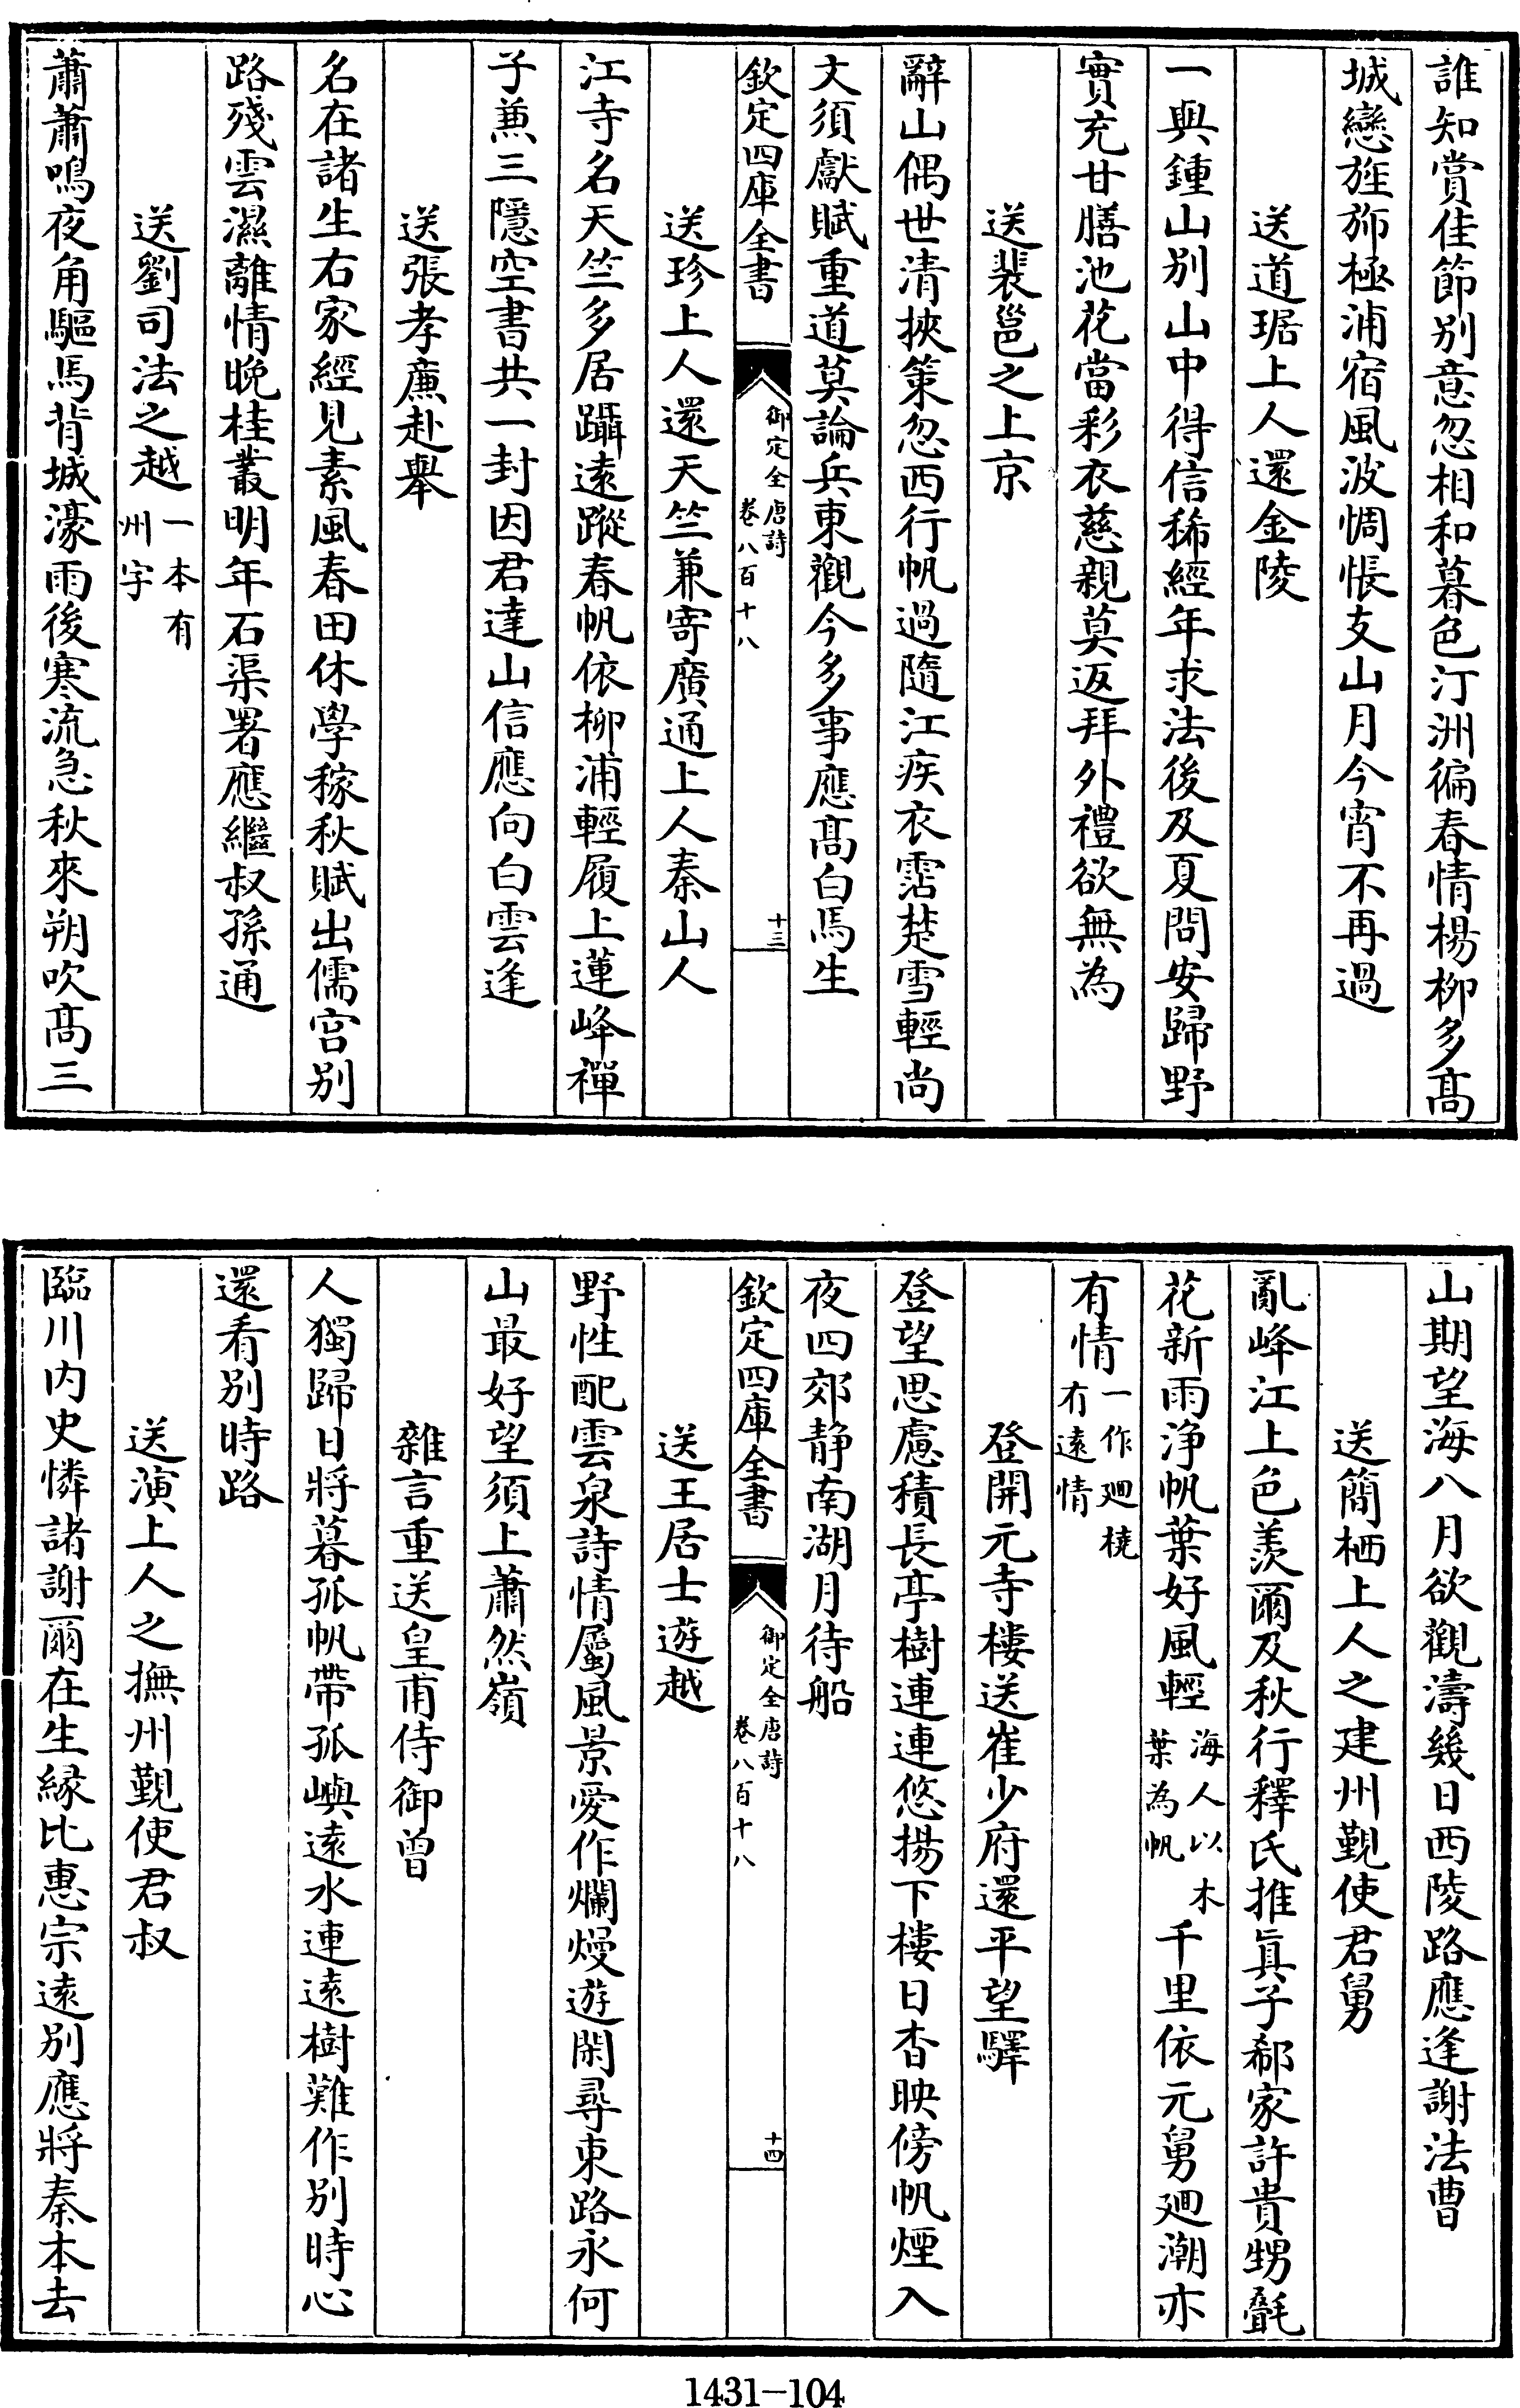 誰知賞佳節别意忽相和暮色汀洲徧春情楊柳多髙
城戀旌斾極浦宿風波惆悵支山月今宵不再過
送道琚上人還金陵
一與鍾山别山中得信稀經年求法後及夏問安歸野
實充甘膳池花當彩衣慈親莫返拜外禮欲無為
送裴邕之上京
辭山偶世清挾策忽西行帆過隨江疾衣霑楚雪輕尚
文須獻賦重道莫論兵東觀今多事應髙白馬生
欽定四庫全書
御定全唐詩
卷八百十八
十三
送珍上人還天竺兼寄廣通上人秦山人
江寺名天竺多居躡逺蹤春帆依柳浦輕履上蓮峰禪
子兼三隱空書共一封因君達山信應向白雲逢
送張孝亷赴舉
名在諸生右家經見素風春田休學稼秋賦出儒宫别
路殘雲濕離情晚桂叢明年石渠署應繼叔孫通
送劉司法之越一本有
州字
蕭蕭鳴夜角驅馬背城濠雨後寒流急秋來朔吹髙三
山期望海八月欲觀濤幾日西陵路應逢謝法曹
送簡栖上人之建州覲使君舅
亂峰江上色羨爾及秋行釋氏推真子郗家許貴甥毳
花新雨浄帆葉好風輕海人以木
葉為帆千里依元舅廻潮亦
有情一作廻橈
有逺情
登開元寺樓送崔少府還平望驛
登望思慮積長亭樹連連悠揚下樓日杳映傍帆煙入
夜四郊静南湖月待船
欽定四庫全書
御定全唐詩
卷八百十八
十四
送王居士遊越
野性配雲泉詩情屬風景愛作爛熳遊閑尋東路永何
山最好望須上蕭然嶺
雜言重送皇甫侍御曾
人獨歸日將暮孤帆帶孤嶼逺水連逺樹難作别時心
還看别時路
送演上人之撫州覲使君叔
臨川内史憐諸謝爾在生縁比惠宗逺别應將秦本去
1431-104